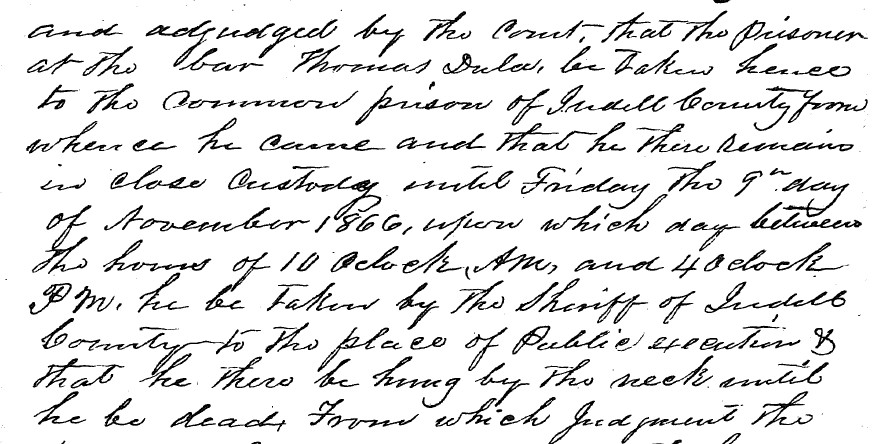 and adjudged by the Court, that the Prisoner
at the bar Thomas Dula, be taken hence
to the Common prison of Iredell County from
whence he came and that he there remain
in close Custody until Friday the 9th day
of November 1866, upon which day between
the hours of 10 Oclock, AM, and 4 Oclock
PM. he be taken by the Sheriff of Iredell
County to the place of Public execution &
that he there be hung by the neck until
he be dead, From which Judgment the